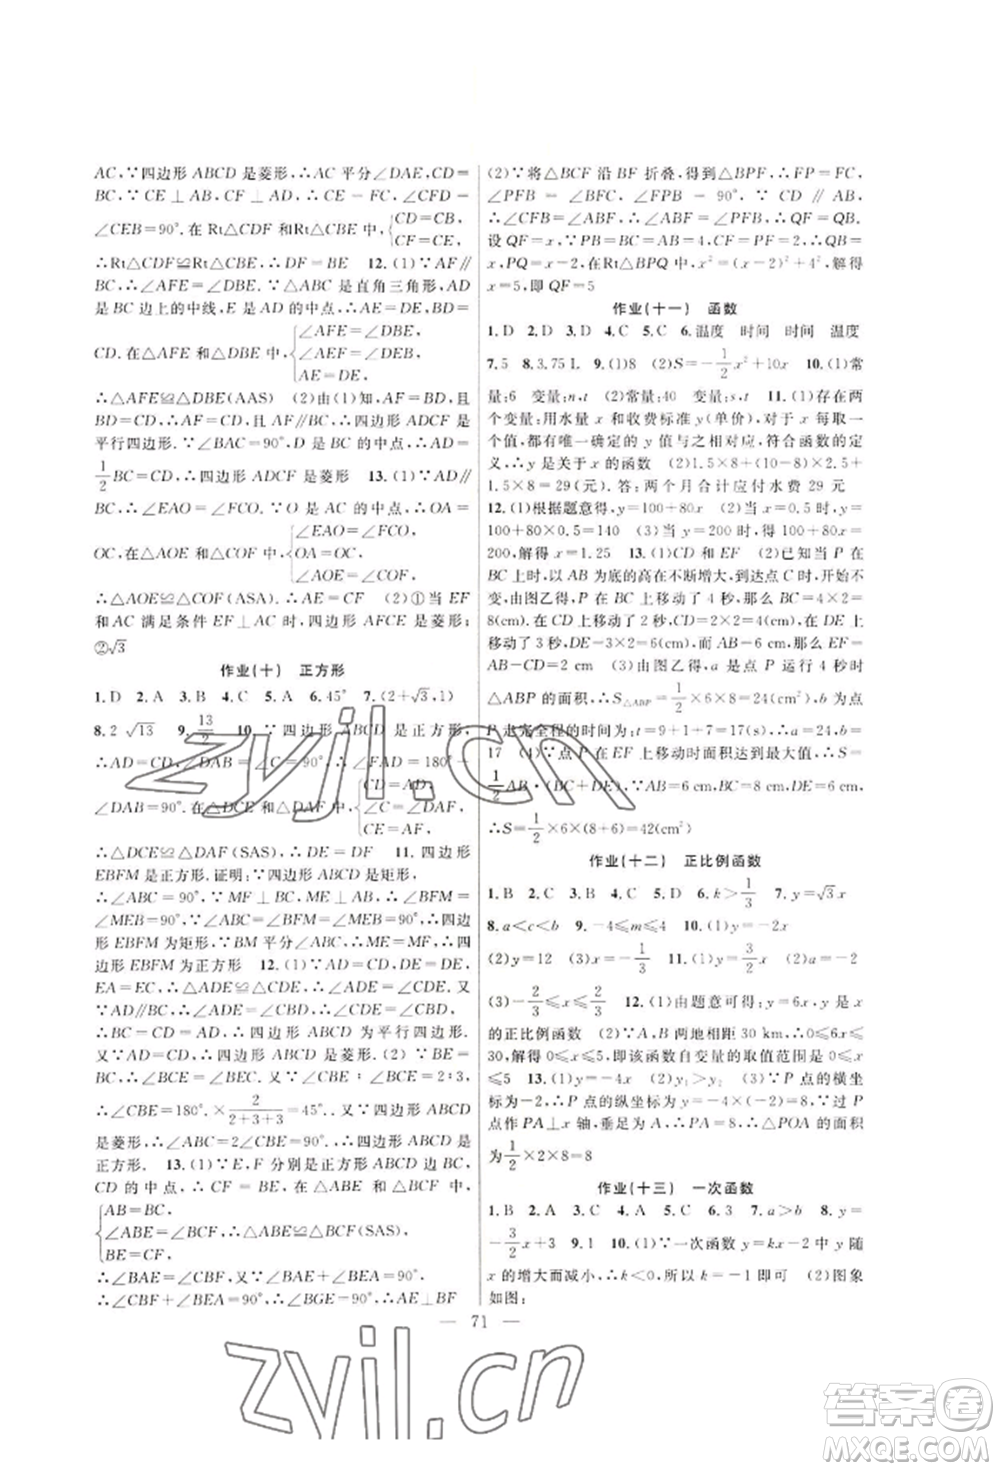 AC,∵四边形 ABCD 是菱形,∴AC 平分∠DAE,CD=
BC,∵CE⊥AB,CF⊥AD,∴CE=FC,∠CFD=
∠CEB=90°.在 Rt△CDF 和Rt△CBE 中,{CD=CB,
CE=CF,
∴Rt△CDF≌Rt△CBE,∴DF=BE 12.(1)∵AF∥
BC,∴∠AFE=∠DBE,∵△ABC 是直角三角形,AD
是 BC 边上的中线,E 是 AD 的中点,∴AE=DE,BD=
CD.在△AFE 和△DBE 中,{∠AFE=∠DBE,
∠AEF=∠DEB,
AE=DE,
∴△AFE≌△DBE(AAS) (2)由(1)知,AF=BD,且
BD=CD,∴AF=CD,且 AF∥BC,∴四边形 ADCF 是
平行四边形.∵∠BAC=90°,D 是 BC 的中点,∴AD=
1/2BC=CD,∴四边形 ADCF 是菱形 13.(1)∵四边
形 ABCD 是矩形,∴AB∥CD,∴∠EAO=∠FCO,
∠AEO=∠CFO.∵O 是 AC 的中点,∴OA=
OC,在△AOE 和△COF 中,{∠EAO=∠FCO,
OA=OC,
∠AOE=∠COF,
∴△AOE≌△COF(ASA).∴OE=OF (2)①当 EF
和 AC 满足条件 EF⊥AC 时,四边形 AFCE 是菱形;
②√3
作业(十) 正方形
1.D 2.A 3.B 4.C 5.A 6.45° 7.(2+√3,1)
8.2 √13 9.13/2 10.∵四边形 ABCD 是正方形,
∴AD=CD,∠DAB=∠C=90°,∴∠FAD=180°-
∠DAB=90°.在△DCE 和△DAF 中,{CD=AD,
∠C=∠DAF,
CE=AF,
∴△DCE≌△DAF(SAS),∴DE=DF 11.四边形
EBFM 是正方形.证明:∵四边形 ABCD 是矩形,
∴∠ABC=90°,∵MF⊥BC,ME⊥AB,∴∠BFM=
∠MEB=90°,∴∠ABC=∠BFM=∠MEB=90°,∴四边
形 EBFM 为矩形,∵BM 平分∠ABC,∴MF=ME,∴四
边形 EBFM 为正方形 12.(1)∵AD=CD,DE=DE,
EA=EC,∴△ADE≌△CDE,∴∠ADE=∠CDE,
又∵AD∥BC,∴∠ADE=∠CBD,∴∠CDE=∠CBD,
∴BC=CD=AD,∴四边形 ABCD 为平行四边形.
又∵AD=CD,∴四边形 ABCD 是菱形.(2)∵BE=
BC,∴∠BCE=∠BEC.又∵∠CBE∶∠BCE=2∶3,
∴∠CBE=180°×2/(2+3+3)=45°.又∵四边形 ABCD
是菱形,∴∠ABC=2∠CBE=90°,∴四边形 ABCD 是
正方形. 13.(1)∵E,F 分别是正方形 ABCD 边 BC,
CD 的中点,∴CF=BE,在△ABE 和△BCF 中,
{AB=BC,
∠ABE=∠BCF,∴△ABE≌△BCF(SAS),
BE=CF,
∴∠BAE=∠CBF,又∵∠BAE+∠BEA=90°,
∴∠CBF+∠BEA=90°,∴∠BGE=90°,∴AE⊥BF
(2)∵将△BCF 沿 BF 折叠,得到△BPF,∴FP=FC,
∠PFB=∠BFC,∠FPB=90°,∵CD∥AB,
∴∠CFB=∠ABF,∴∠ABF=∠PFB,∴QF=QB,
设 QF=x,∵PB=BC=AB=4,CF=PF=2,∴QB=x,
PQ=x-2,在Rt△BPQ 中,x²=(x-2)²+4²,解得
x=5,即 QF=5
作业(十一) 函数
1.D 2.D 3.D 4.C 5.C 6.温度 时间 时间 温度
7.5 8.3.75 L 9.(1)8 (2)S=-1/2x²+10x 10.(1)常
量:6 变量:n,t (2)常量:40 变量:s,t 11.(1)存在两
个变量:用水量 x 和收费标准 y(单价),对于 x 每取一
个值,都有唯一确定的 y 值与之相对应,符合函数的定
义,∴y 是关于 x 的函数 (2)1.5×8+(10-8)×2.5+
1.5×8=29(元).答:两个月合计应付水费 29 元
12.(1)根据题意得,y=100+80x (2)当 x=0.5 时,y=
100+80×0.5=140 (3)当 y=200 时,得 100+80x=
200,解得 x=1.25 13.(1)CD 和 EF (2)已知当 P 在
BC 上时,以 AB 为底的高在不断增大,到达点 C 时,开始不
变,由图乙得,P 在 BC 上移动了 4 秒,那么 BC=4×2=
8(cm).在 CD 上移动了 2 秒,CD=2×2=4(cm),在 DE 上
移动了 3 秒,DE=3×2=6(cm),而 AB=6 cm,那么 EF=
AB-CD=2(cm) (3)由图乙得,a 是点 P 运行 4 秒时
△ABP 的面积,∴S△ABP=1/2×6×8=24(cm²),b 为点
P 走完全程的时间为:t=9+1+7=17(s),∴a=24,b=
17 (4)∵点 P 在 EF 上移动时面积达到最大值,∴S=
1/2AB·(BC+DE),∵AB=6 cm,BC=8 cm,DE=6 cm,
∴S=1/2×6×(8+6)=42(cm²)
作业(十二) 正比例函数
1.B 2.C 3.C 4.C 5.D 6.k>1/3 7.y=√3x
8.a<c<b 9.-4≤m≤4 10.(1)y=-2x
(2)y=12 (3)x=-1/3 11.(1)y=-3x (2)y=-2
(3)-2/3≤x≤2/3 12.(1)由题意可得:y=6x,y 是 x
的正比例函数 (2)∵A,B 两地相距 30 km,∴0≤6x≤
30,解得:0≤x≤5,即该函数自变量的取值范围是 0≤x
≤5 13.(1)y=-4x (2)y₁>y₂ (3)∵P 点的横坐
标为-2,∴P 点的纵坐标为 y=-4×(-2)=8,过 P
点作 PA⊥x 轴,垂足为点 A,∴PA=8,∴△POA 的面积
为 1/2×2×8=8
作业(十三) 一次函数
1.B 2.A 3.C 4.A 5.C 6.3 7.a>b 8.y=
-3/2x+3 9.1 10.(1)∵一次函数 y=kx-2 中 y 随
x 的增大而减小,∴k<0,所以 k=-1 即可 (2)图象
如图:
— 71 —
zyjl.cn
zyjl.cn
答案圈
MXQE.COM